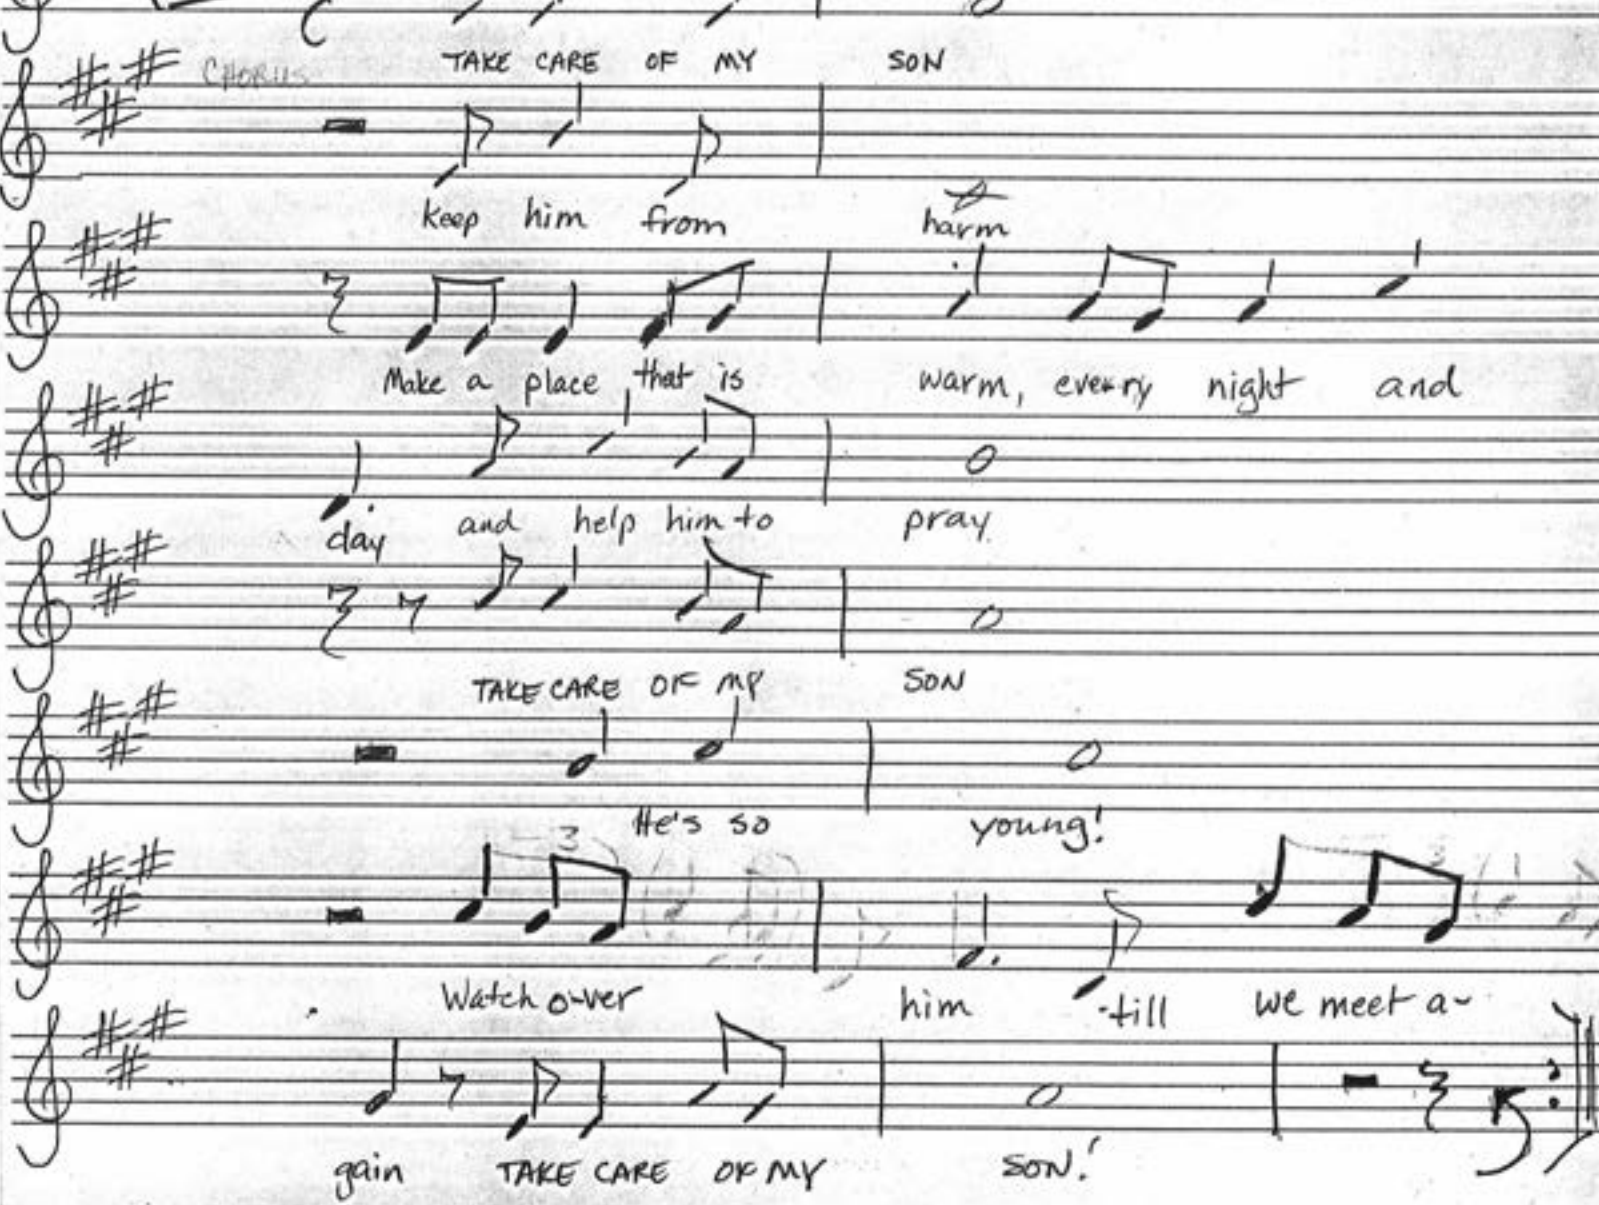 TAKE CARE OF MY SON
CHORUS
keep him from harm
Make a place that is warm, every night and
day and help him to pray
TAKE CARE OF MY SON
He's so young!
3
3
Watch o-ver him till we meet a-
gain TAKE CARE OF MY SON!